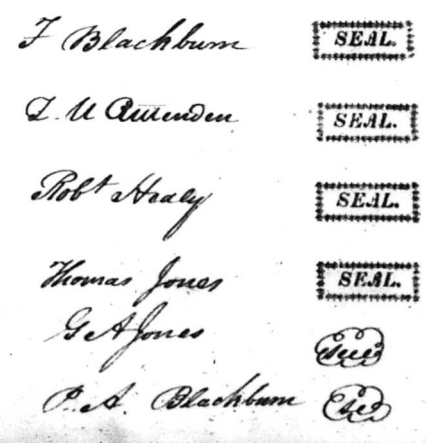 F Blackburn SEAL.
L. U Crittenden SEAL.
Robt Healy SEAL.
Thomas Jones SEAL.
G A Jones Seal
P. A. Blackburn Seal